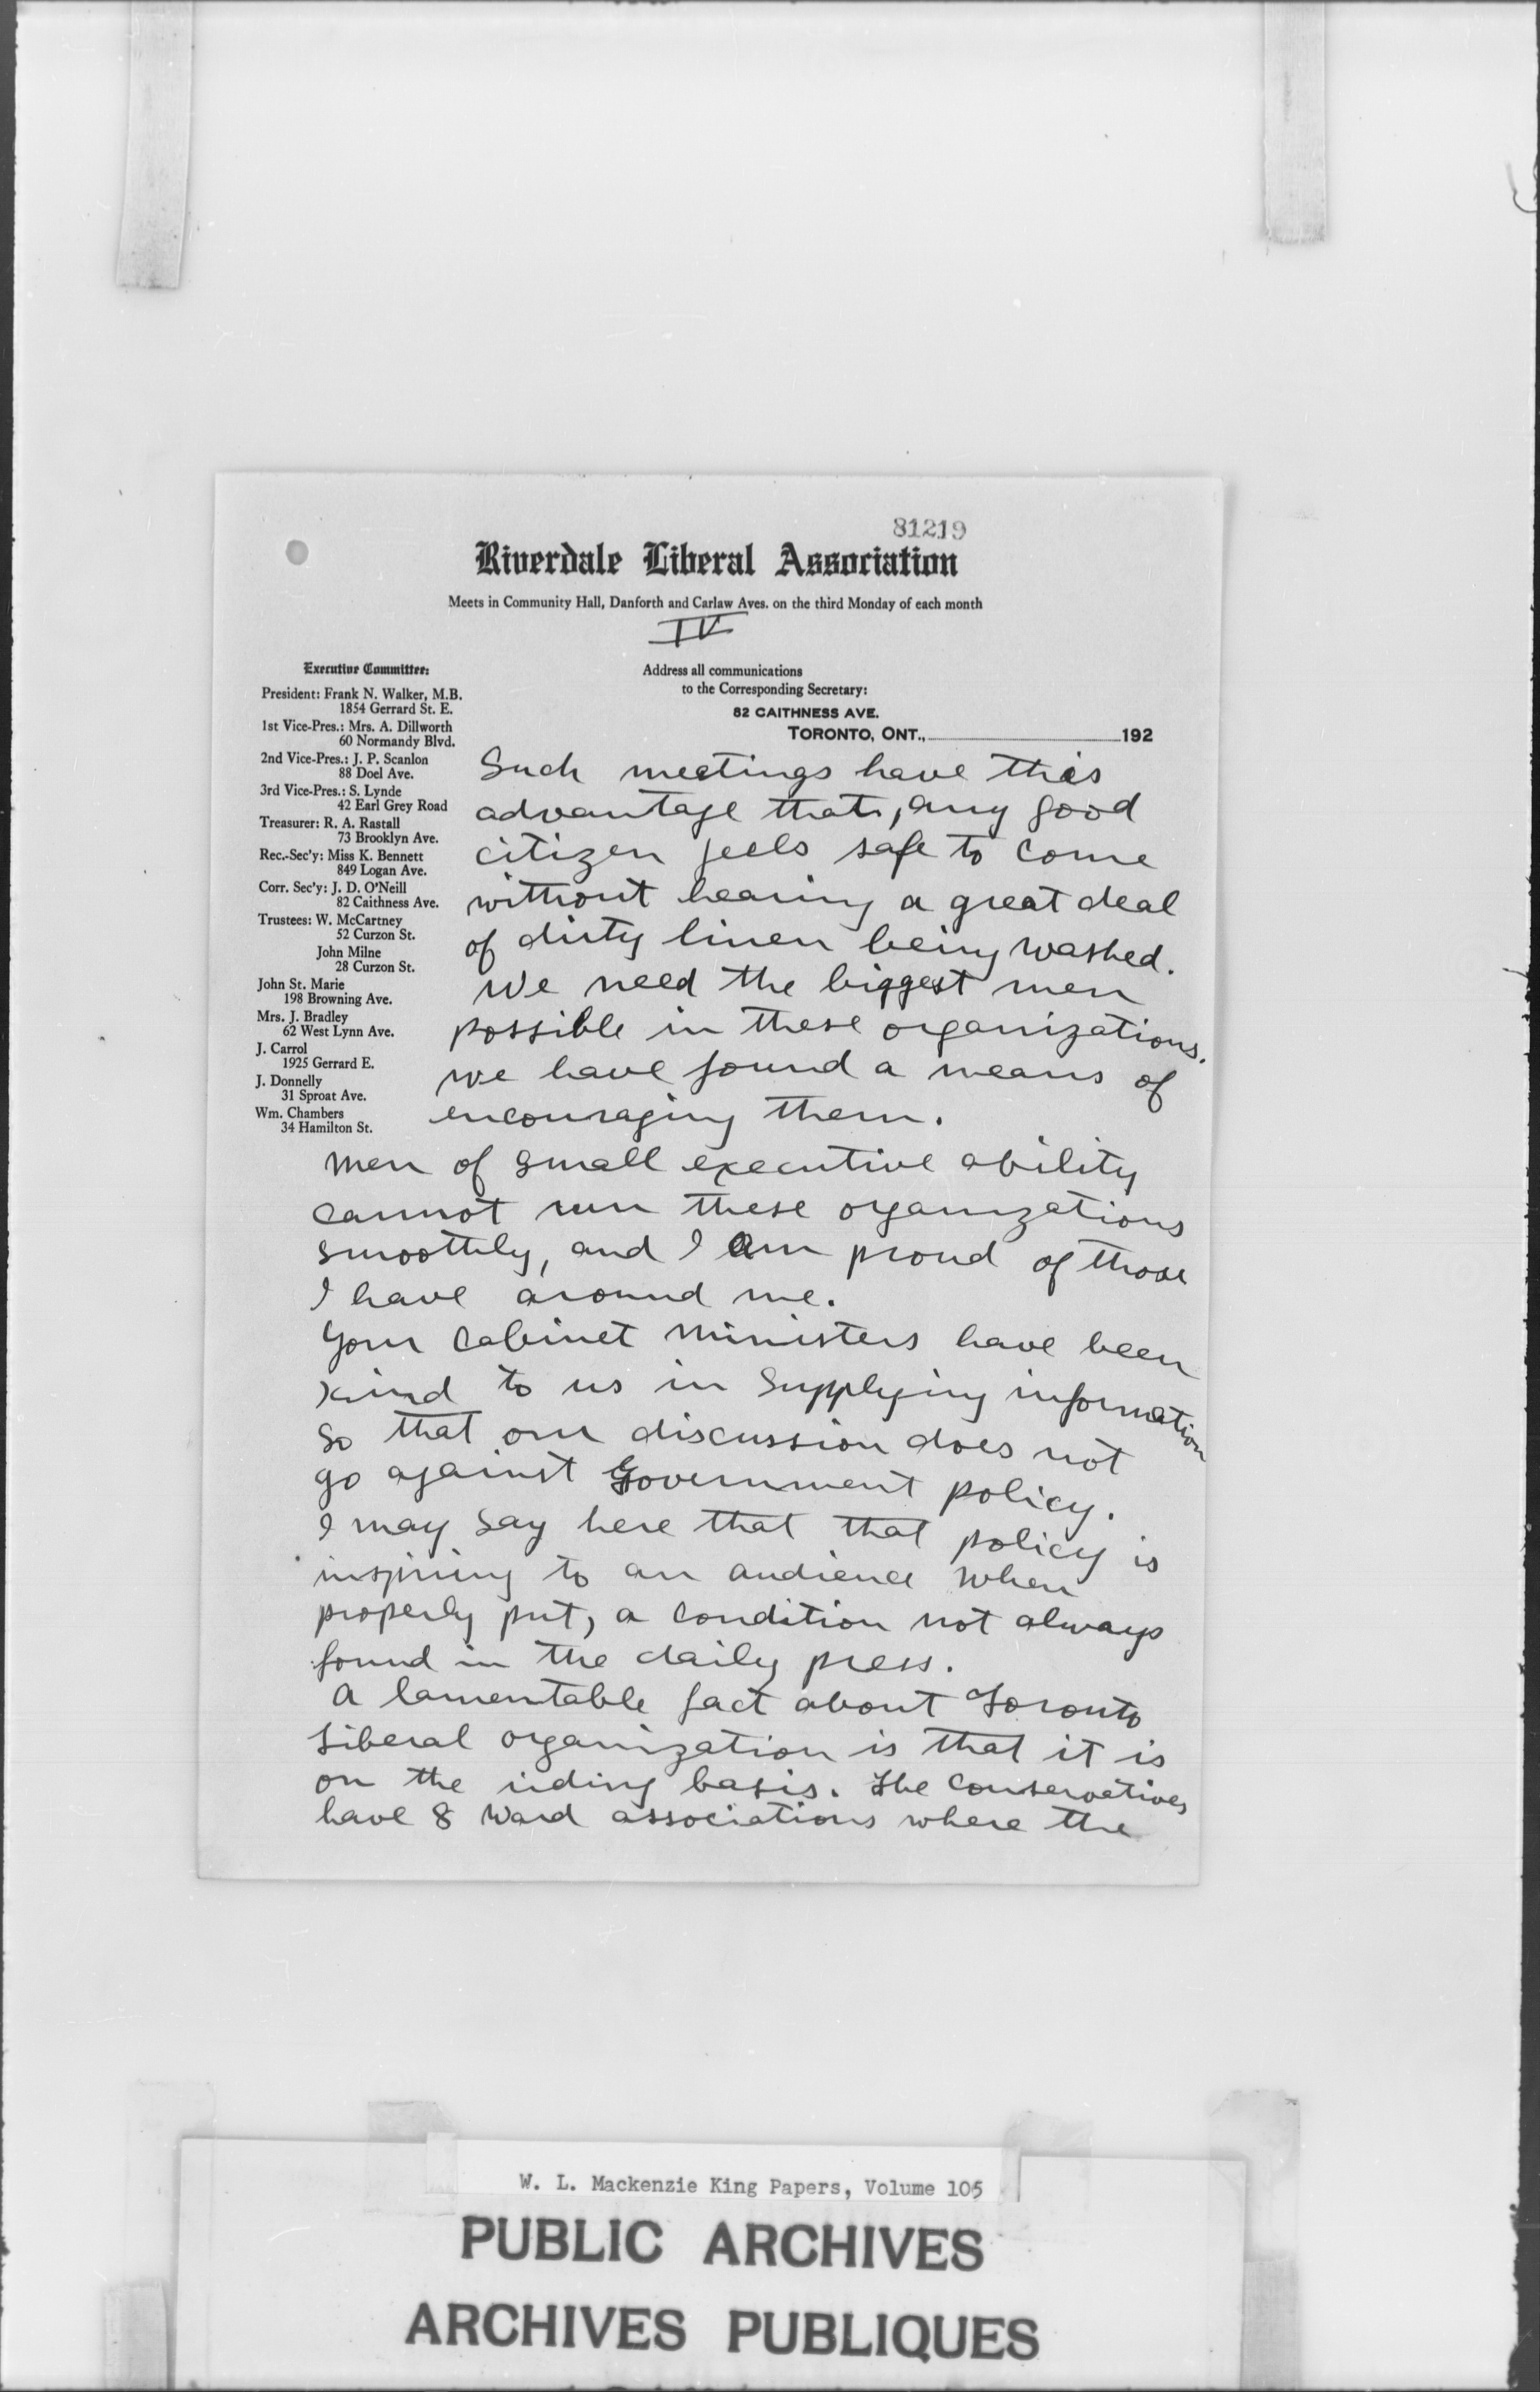 81219
Riverdale Liberal Association
Meets in Community Hall, Danforth and Carlaw Aves. on the third Monday of each month
IV
Executive Committee:
President: Frank N. Walker, M.B.
1854 Gerrard St. E.
1st Vice-Pres.: Mrs. A. Dillworth
60 Normandy Blvd.
2nd Vice-Pres.: J. P. Scanlon
88 Doel Ave.
3rd Vice-Pres.: S. Lynde
42 Earl Grey Road
Treasurer: R. A. Rastall
73 Brooklyn Ave.
Rec.-Sec'y: Miss K. Bennett
849 Logan Ave.
Corr. Sec'y: J. D. O'Neill
82 Caithness Ave.
Trustees: W. McCartney
52 Curzon St.
John Milne
28 Curzon St.
John St. Marie
198 Browning Ave.
Mrs. J. Bradley
62 West Lynn Ave.
J. Carrol
1925 Gerrard E.
J. Donnelly
31 Sproat Ave.
Wm. Chambers
34 Hamilton St.
Address all communications
to the Corresponding Secretary:
82 CAITHNESS AVE.
TORONTO, ONT., 192
Such meetings have this
advantage that, any good
citizen feels safe to come
without hearing a great deal
of dirty linen being washed.
We need the biggest men
possible in these organizations.
We have found a means of
encouraging them.
Men of small executive ability
cannot run these organizations
smoothly, and I am proud of those
I have around me.
Your Cabinet Ministers have been
kind to us in supplying information
so that our discussion does not
go against Government policy.
I may say here that that policy is
inspiring to an audience when
properly put, a condition not always
found in the daily press.
A lamentable fact about Toronto
Liberal organization is that it is
on the riding basis. The Conservatives
have 8 Ward associations where the
W. L. Mackenzie King Papers, Volume 105
PUBLIC ARCHIVES
ARCHIVES PUBLIQUES